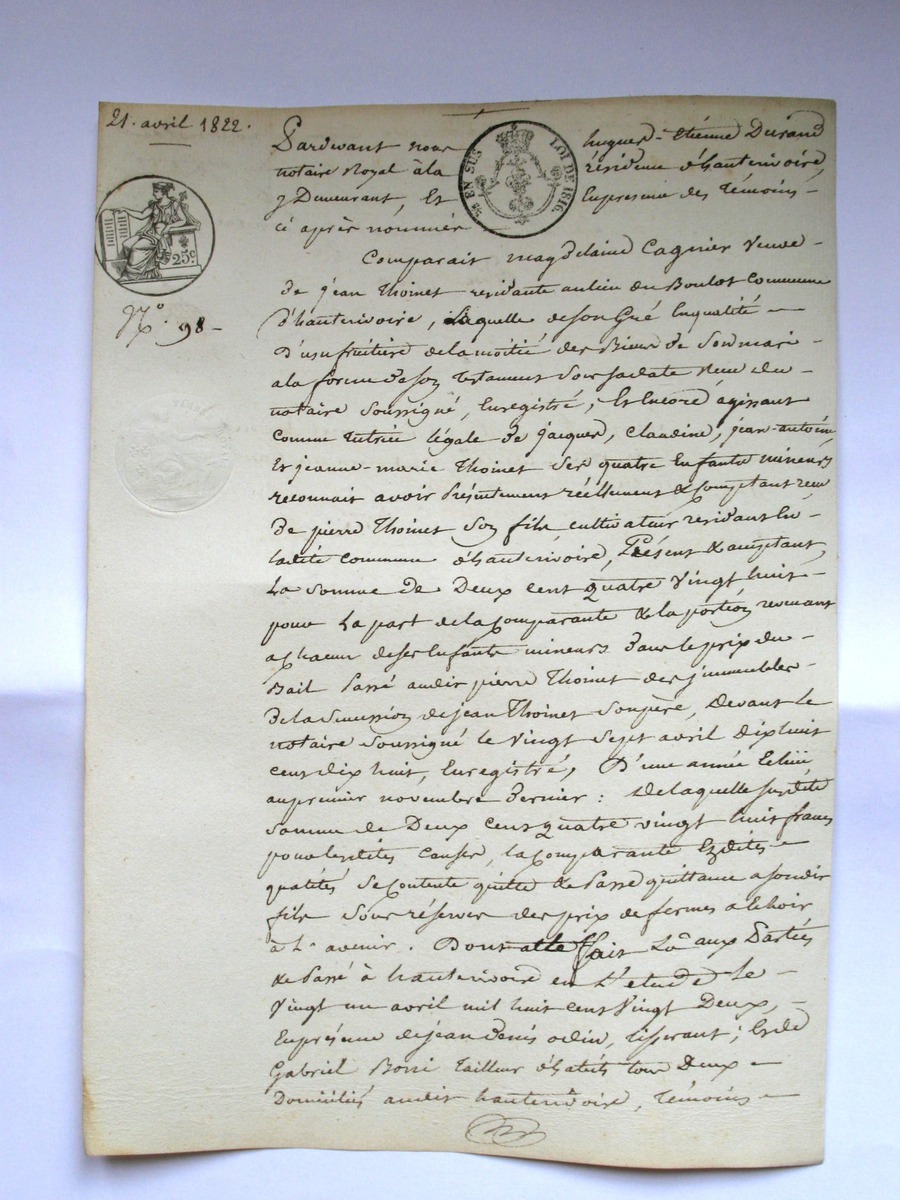 21. avril 1822.
Pardevant nous hugues-Etiénne Durand
notaire Royal à la résidence d'hauterivoire,
y Demeurant, Et En presence des Témoins
ci après nommés
EN SUS
LOI DE 1816
25c
N.º 98
Comparait magdelaine Cagnier Veuve
de jean Thoinet residante au lieu du Boulot Commune
d'hauterivoire, Laquelle de son Gré En qualité
D'usufruitiére de la moitié des Biens de Son mari
a la forme de son testament Sous sa date reçu du
notaire Soussigné, Enregistré; Et Encore agissant
Comme tutrice légale de jacques, Claudine, jean-antoine
Et jeanne-marie Thoinet Ses quatre Enfants mineurs
reconnait avoir Présentement réellement & Comptant reçu
De pierre Thoinet Son fils cultivateur residant En
ladite commune d'hauterivoire, Présent & acceptant,
La somme de Deux cent quatre vingt huit
pour La part de la Comparante & la portion revenant
a chacun de ses Enfants mineurs Dans le prix du
Bail Passé audit pierre Thoinet des jmmeubles
de la Succession de jean Thoinet Son père, devant le
notaire Soussigné le vingt Sept avril dix huit
cent dix huit, Enregistré; D'une année Echüe
au premier novembre Dernier: de laquelle susdite
Somme de Deux cent quatre vingt huit francs
pour lesdites causes, la Comparante Esdites
qualités Se Contente quitte & Passe quittance a son dit
fils Sous réserves des prix de fermes a Echoir
à L'avenir. Dont acte fait Lu aux Parties
& Passé à hauterivoire en L'etude Le
vingt un avril mil huit cent vingt Deux,
En présence de jean Denis odin, tisserant; Et de
Gabriel Bossi tailleur d'habits tous Deux
Domiciliés audit hauterivoire, Témoins